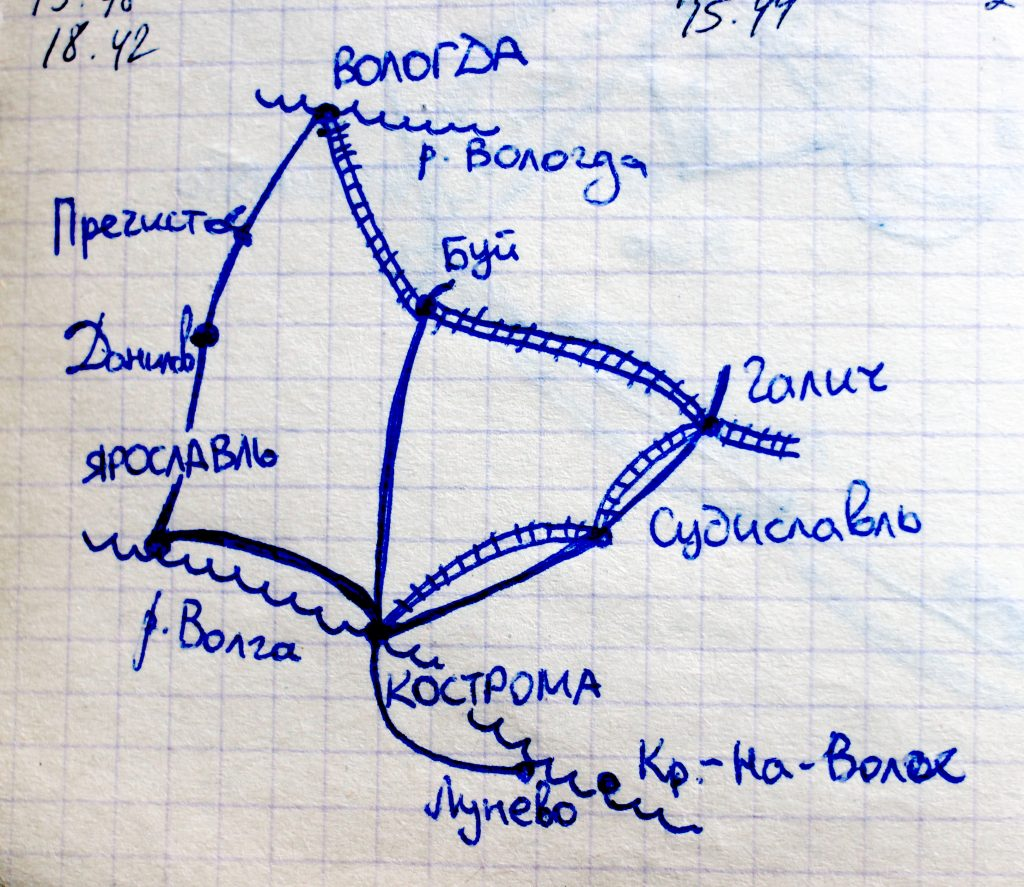 18.42
15.44
ВОЛОГДА
р. Вологда
Пречистое
Буй
Данилов
Галич
ЯРОСЛАВЛЬ
Судиславль
р. Волга
КОСТРОМА
Кр.-на-Волге
Лунево